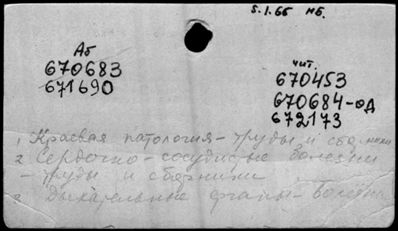 5.1.66 нб.
Аб
670683
671690
чит.
670453
670684-од
672173
1. Краевая патология - труды и сборники
2 Сердочно - сосудистые болезни
- труды и сборники
2 Дыхательные органы - болезни